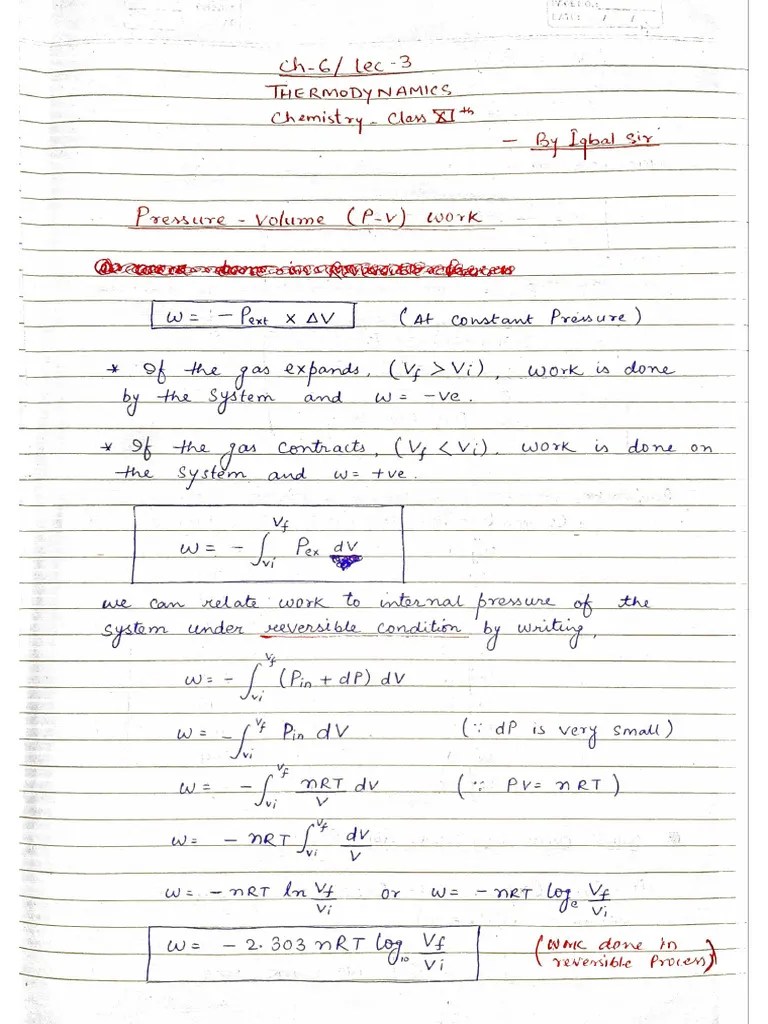 Ch-6/ Lec-3
THERMODYNAMICS
Chemistry - Class XI th
- By Iqbal Sir
Pressure - Volume (P-V) work
w = - Pext × ΔV (At constant Pressure)
* If the gas expands, (Vf > Vi), work is done
by the System and w = -ve.
* If the gas contracts, (Vf < Vi). work is done on
the system and w = +ve.
w = - ∫Vi^Vf Pex dV
we can relate work to internal pressure of the
system under reversible condition by writing,
w = - ∫Vi^Vf (Pin + dP) dV
w = - ∫Vi^Vf Pin dV (∵ dP is very small)
w = - ∫Vi^Vf nRT/V dV (∵ PV = nRT)
w = - nRT ∫Vi^Vf dV/V
w = - nRT ln Vf/Vi or w = - nRT loge Vf/Vi
w = - 2.303 nRT log10 Vf/Vi (work done in
reversible Process)